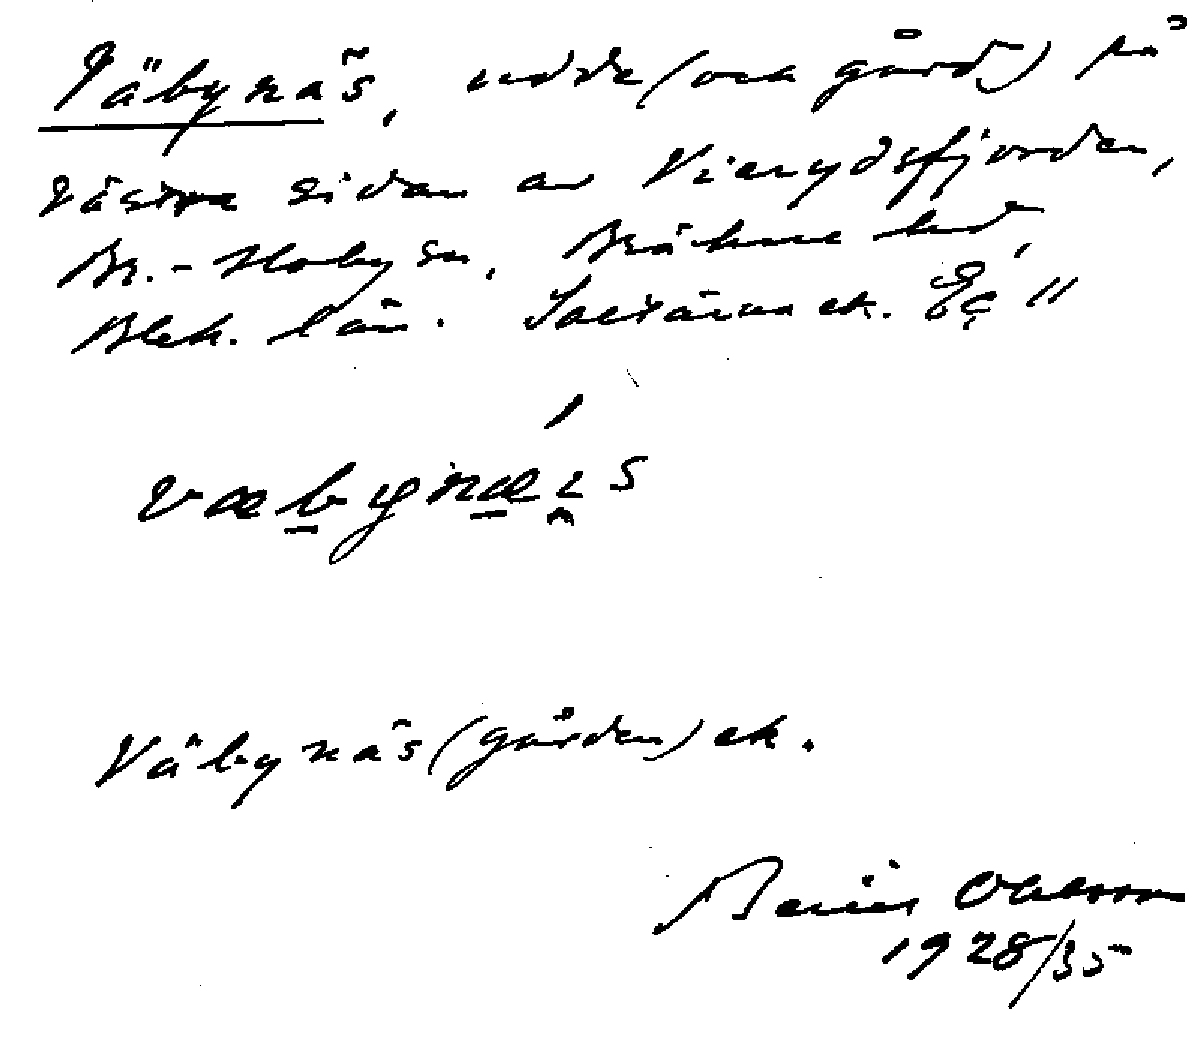 Väbynäs, udde (och gård) på
västra sidan av Vierydsfjorden,
Br.-Hoby sn, Bräkne hd,
Blek. län. Saxtärna ek.
væbynæis
Väbynäs (gården) ek.
Ohlsson
1928/35